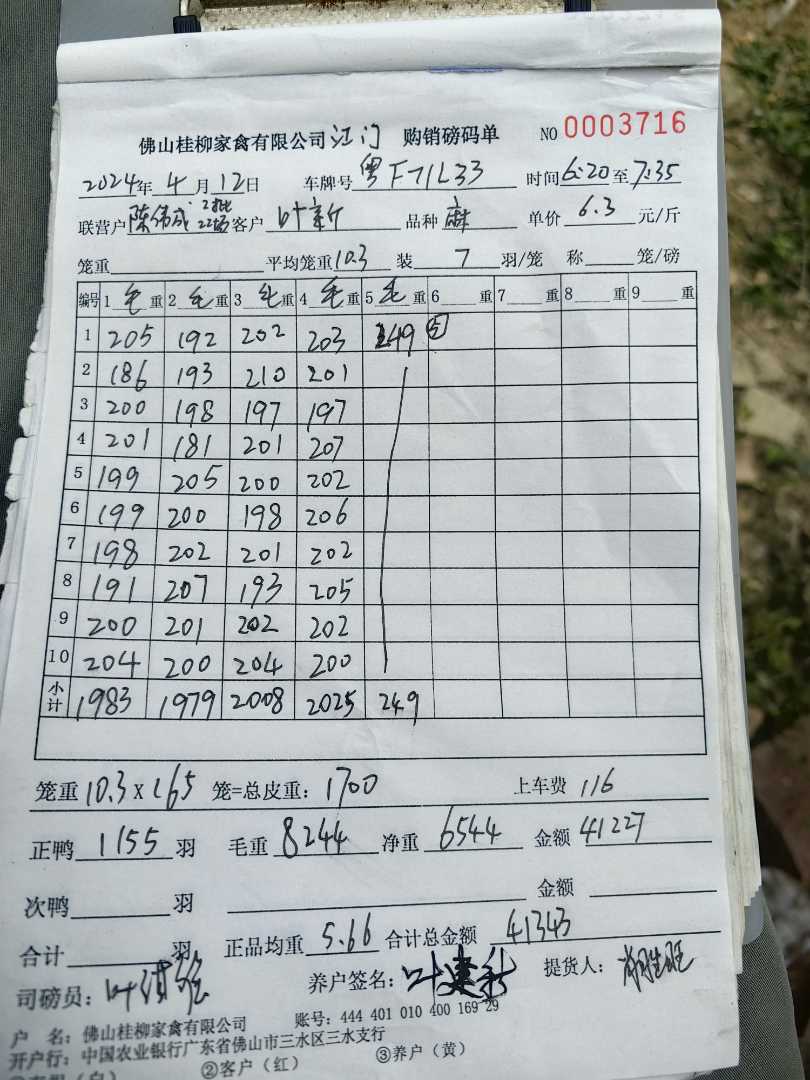 佛山桂柳家禽有限公司江门 购销磅码单 NO 0003716
2024年 4月12日 车牌号 粤F71L33 时间6:20至7:35
联营户陈伟成 2批 22场 客户 叶新 品种 麻 单价 6.3 元/斤
笼重 平均笼重10.3 装 7 羽/笼 称 笼/磅
编号 1毛重 2毛重 3毛重 4毛重 5毛重 6 重 7 重 8 重 9 重
1 205 192 202 203 249 ⑤
2 186 193 210 201
3 200 198 197 197
4 201 181 201 207
5 199 205 200 202
6 199 200 198 206
7 198 202 201 202
8 191 207 193 205
9 200 201 202 202
10 204 200 204 200
小计 1983 1979 2008 2025 249
笼重10.3×165 笼=总皮重:1700 上车费 116
正鸭 1155 羽 毛重 8244 净重 6544 金额 41227
次鸭 羽 金额
合计 羽 正品均重 5.66 合计总金额 41343
司磅员: 养户签名:叶建新 提货人:
户 名:佛山桂柳家禽有限公司 账号:444 401 010 400 169 29
开户行:中国农业银行广东省佛山市三水区三水支行
②客户(红) ③养户(黄)